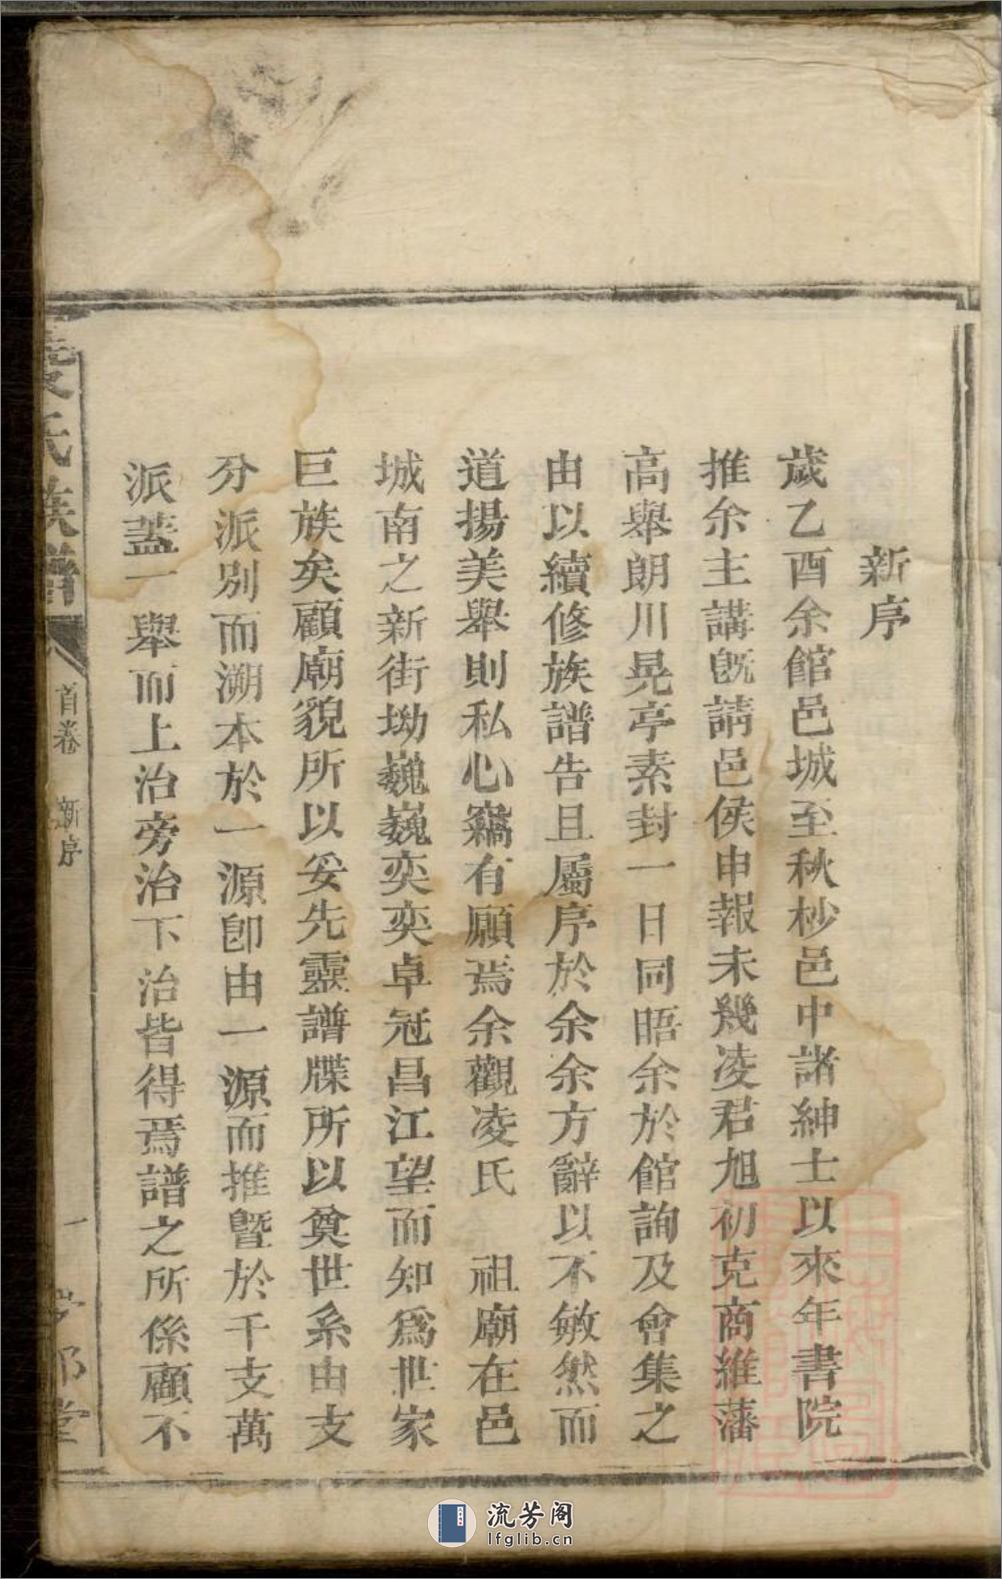 新序
歲乙酉余館邑城至秋杪邑中諸紳士以來年書院
推余主講旣請邑侯申報未幾凌君旭初克商維藩
高舉朗川晃亭素封一日同晤余於館詢及會集之
由以續修族譜告且屬序於余余方辭以不敏然而
道揚美舉則私心竊有願焉余觀凌氏　祖廟在邑
城南之新街坳巍巍奕奕卓冠昌江望而知爲世家
巨族矣顧廟貌所以妥先靈譜牒所以奠世系由支
分派別而溯本於一源卽由一源而推曁於千支萬
派蓋一舉而上治旁治下治皆得焉譜之所係顧不
氏族譜
首卷　新序
一
堂
流芳阁
lfglib.cn